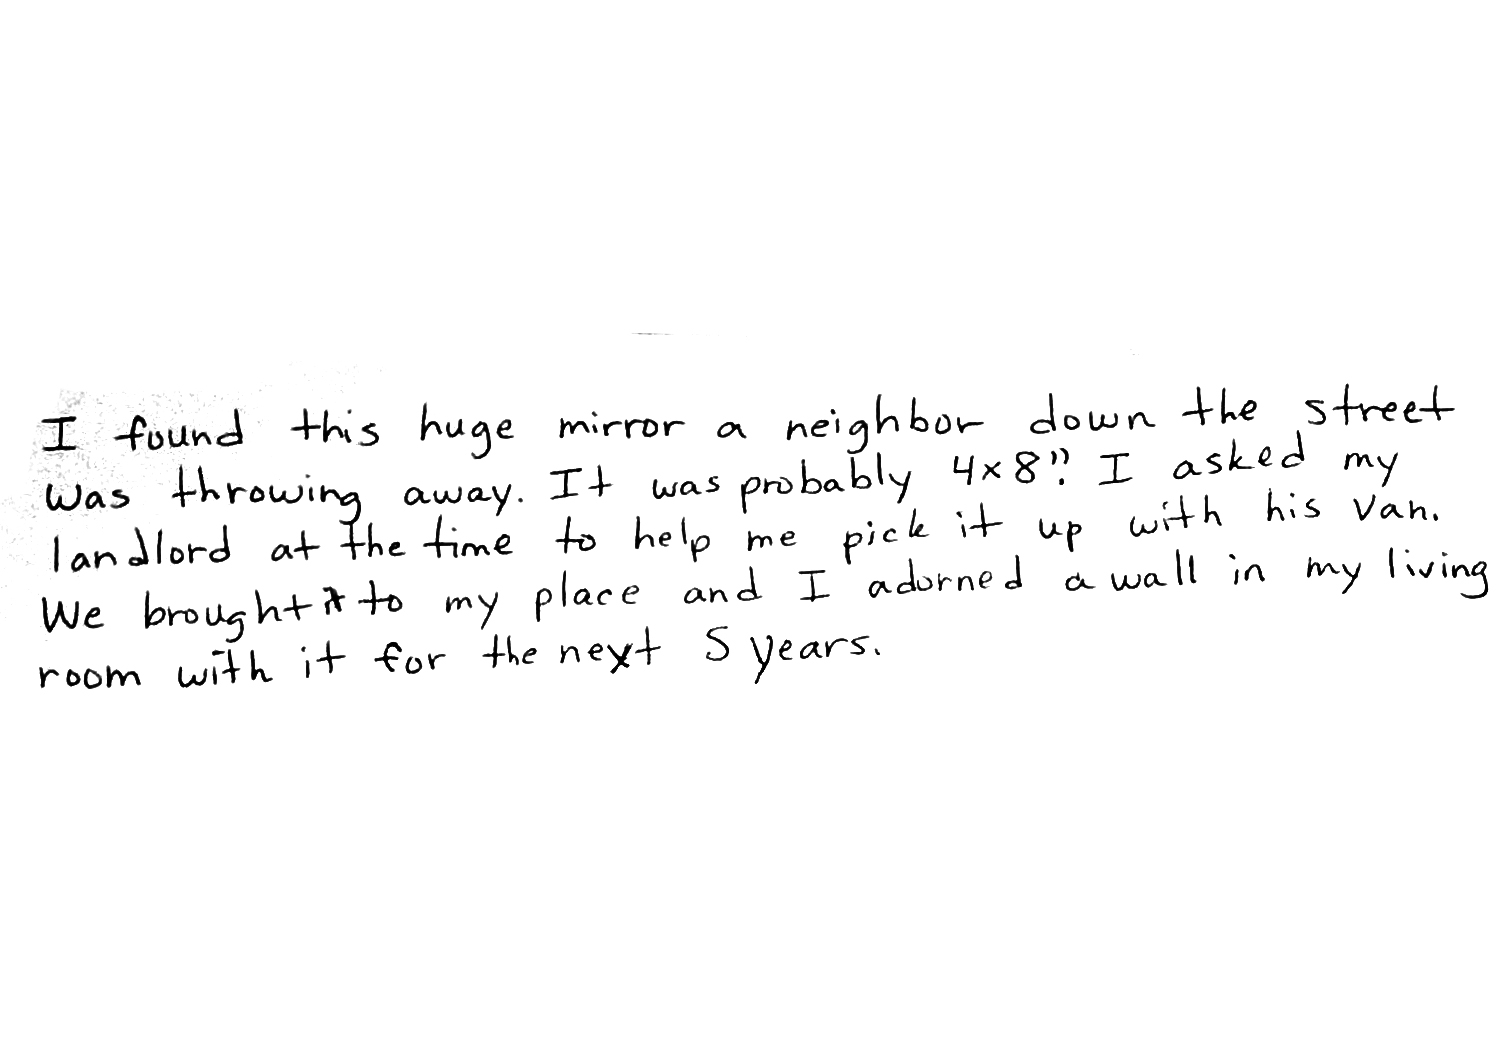 I found this huge mirror a neighbor down the street
was throwing away. It was probably 4x8". I asked my
landlord at the time to help me pick it up with his van.
We brought it to my place and I adorned a wall in my living
room with it for the next 5 years.